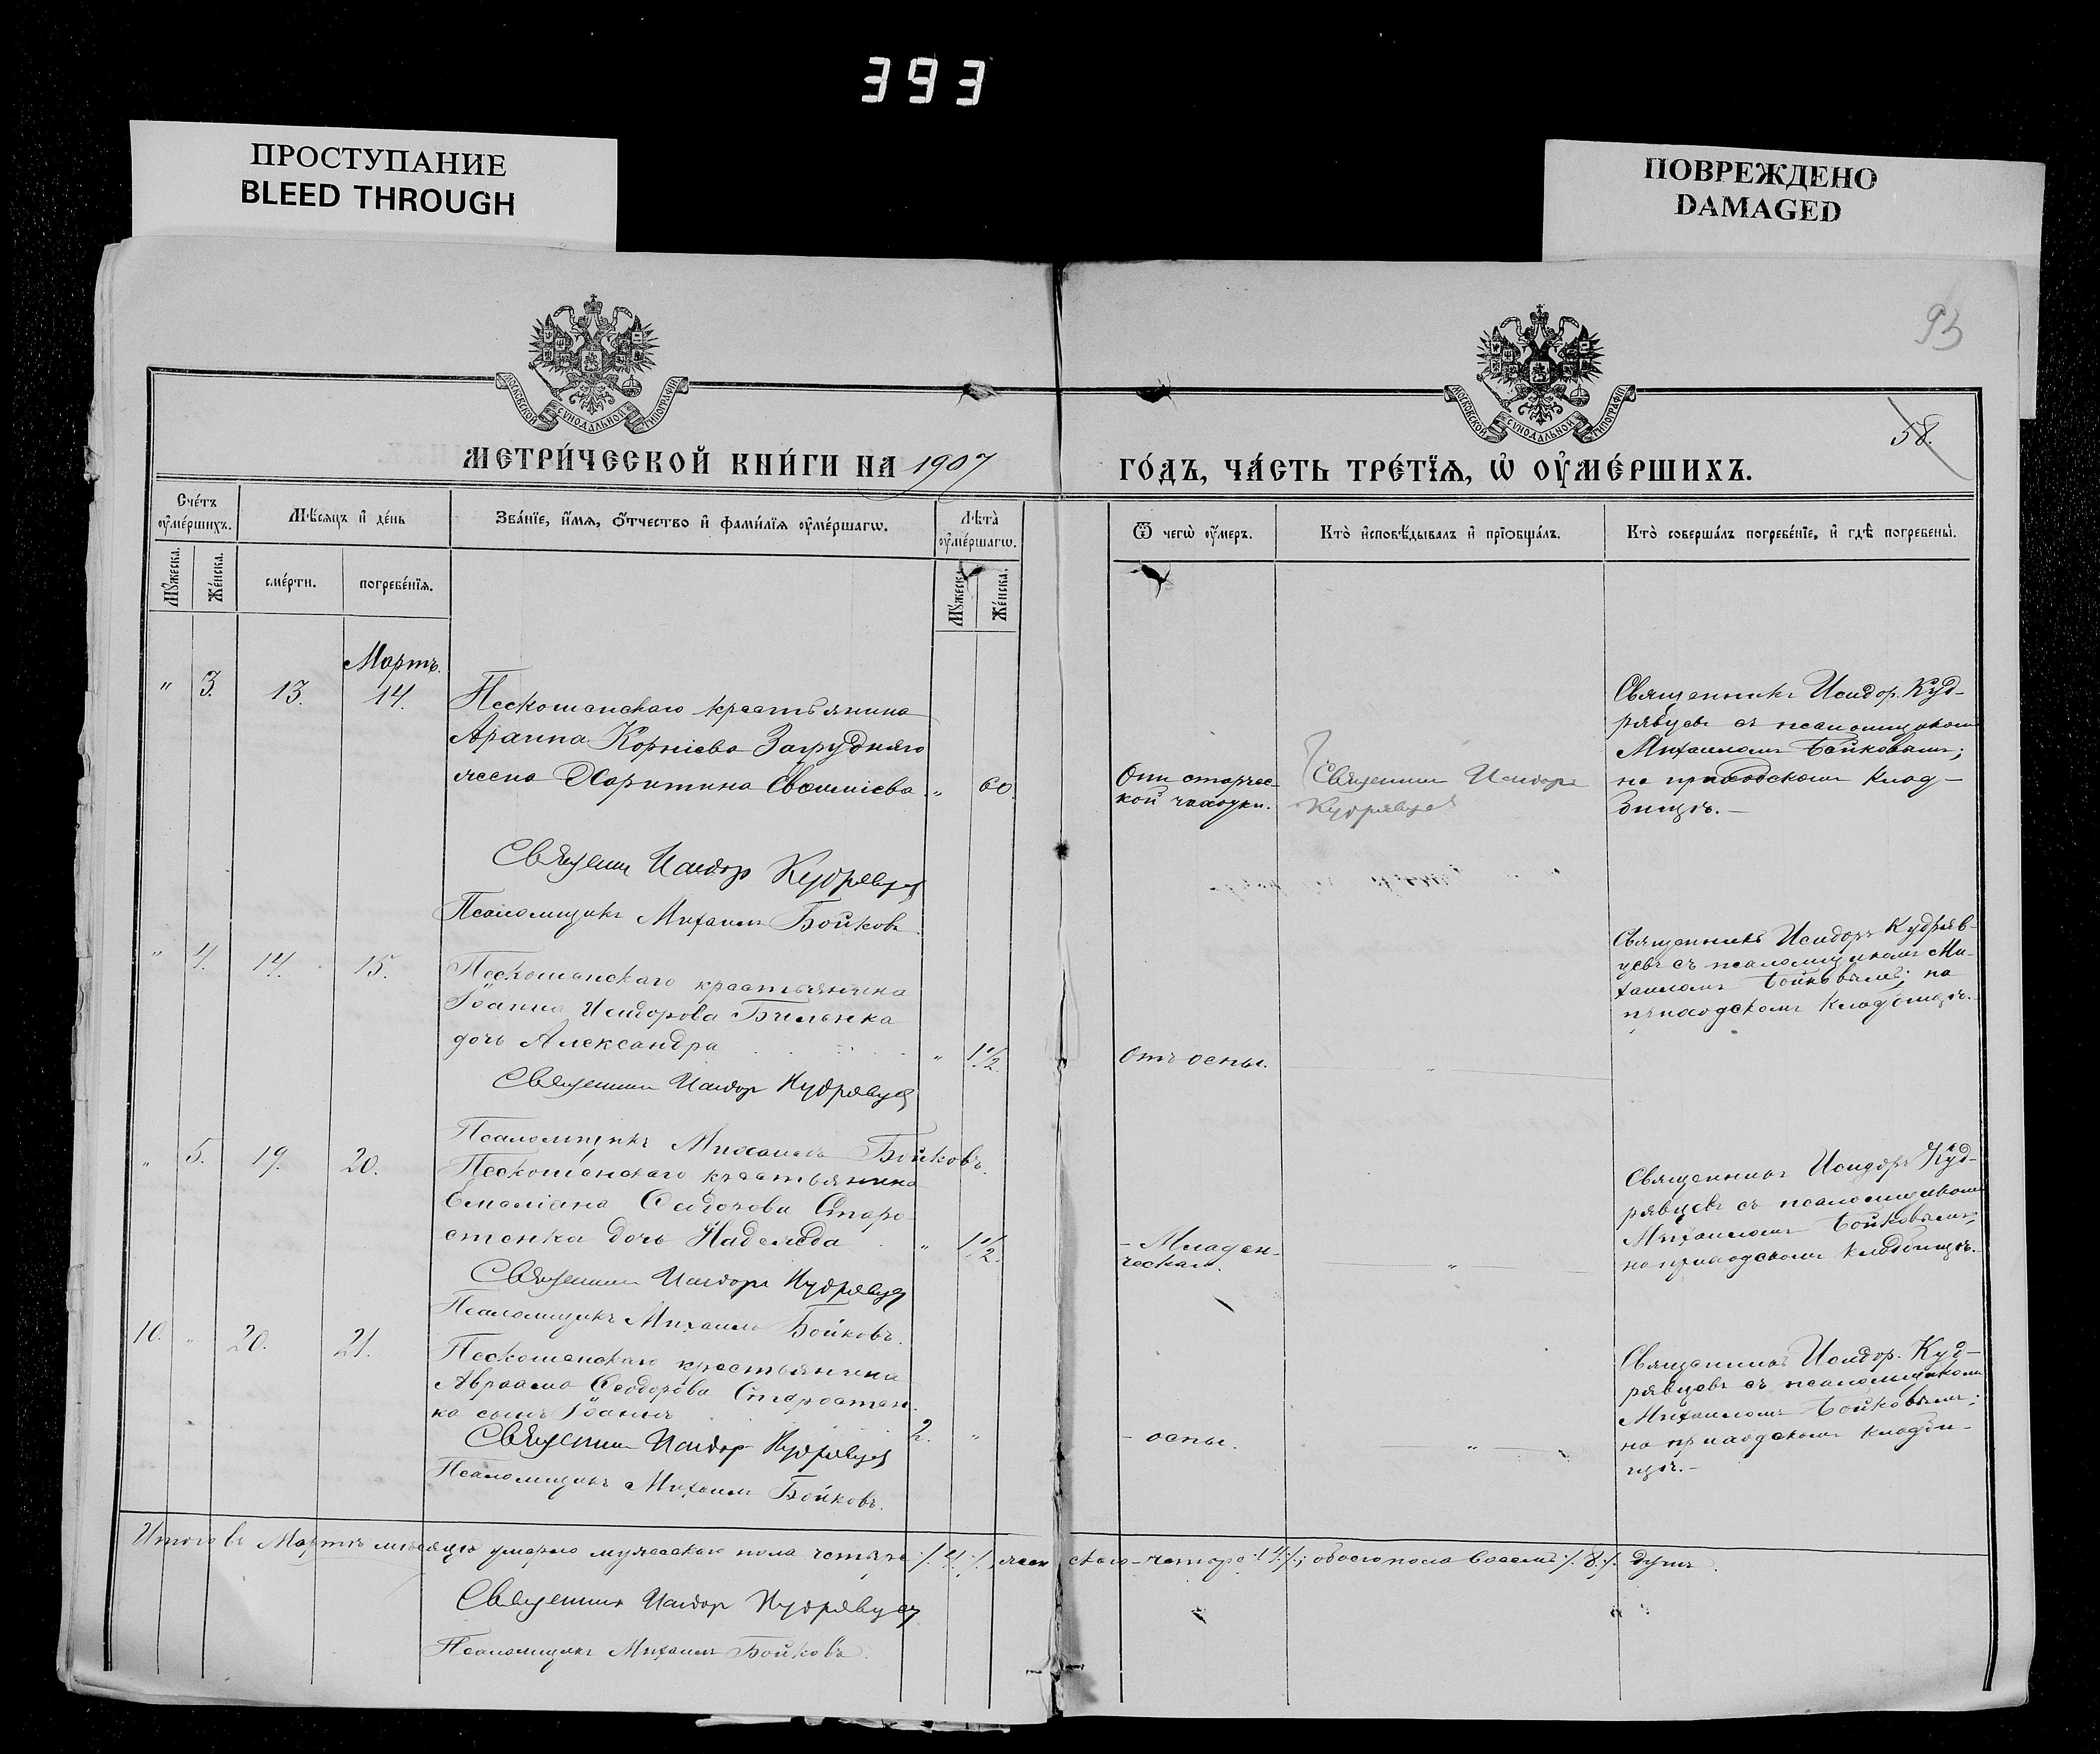 393
ПРОСТУПАНИЕ
BLEED THROUGH
ПОВРЕЖДЕНО
DAMAGED
93
МОСКОВСКОЙ СѴНОДАЛЬНОЙ ТИПОГРАФІИ
МОСКОВСКОЙ СѴНОДАЛЬНОЙ ТИПОГРАФІИ
58.
МЕТРИ́ЧЕСКОЙ КНИ́ГИ НА 1907
ГО́ДЪ, ЧА́СТЬ ТРЕ́ТЇѦ, Ѡ҆ ОУ҆МЕ́РШИХЪ.
Сче́тъ оу҆ме́ршихъ.
Мѣ́сяцъ и҆ де́нь
Зва́нїе, и҆́мѧ, ѻ҆́тчество и҆ фами́лїѧ оу҆ме́ршагѡ.
Лѣта̀ оу҆ме́ршагѡ.
Ѿ чегѡ̀ оу҆́меръ.
Кто̀ и҆сповѣ́дывалъ и҆ прїѻбща́лъ.
Кто̀ соверша́лъ погребе́нїе, и҆ гдѣ̀ погребены̀.
Мꙋ́жеска.
Же́нска.
сме́рти.
погребе́нїѧ.
Мꙋ́жеск.
Же́нска.
Мартъ.
" 3. 13. 14.
Пескошанскаго крестьянина
Корніева Загрудняго
жена Харитина " 60.
Отъ старчес-
кой чахотки.
Священник Исидоръ
Кудрявцев
Священникъ Исидор. Куд-
рявцевъ съ псаломщикомъ
Михаиломъ Бойковымъ;
на приходскомъ клад-
бищѣ.
Священник Исидор Кудрявцев
Псаломщикъ Михаилъ Бойковъ
" 4. 14. 15.
Пескошанскаго крестьянина
Іоанна Исидорова Биленка
дочь Александра " 1 1/2.
Отъ оспы.
"
Священникъ Исидоръ Кудряв-
цевъ съ псаломщикомъ Ми-
хаиломъ Бойковымъ; на
приходскомъ кладбищѣ.
Священник Исидор Кудрявцев
Псаломщикъ Михаилъ Бойковъ.
" 5. 19. 20.
Пескошанскаго крестьянина
Емеліана Ѳеодорова Старо-
стенка дочь Надежда " 1 1/2.
- Младен-
ческая.
"
Священникъ Исидоръ Куд-
рявцевъ съ псаломщикомъ
Михаиломъ Бойковымъ;
на приходскомъ кладбищѣ.
Священник Исидоръ Кудрявцев
Псаломщикъ Михаилъ Бойковъ.
10. " 20. 21.
Пескошанскаго крестьянина
Авраама Ѳеодорова Старостен-
ка сынъ Іоаннъ 2. "
- оспы.
"
Священникъ Исидор. Куд-
рявцевъ съ псаломщикомъ
Михаиломъ Бойковымъ;
на приходскомъ кладби-
щѣ.
Священник Исидор Кудрявцев
Псаломщикъ Михаилъ Бойковъ.
Итого въ Мартѣ мѣсяцѣ умерло мужескаго пола четыре ·/. 4 ·/. женскаго - четыре ·/. 4 ·/.; обоего пола восемь ·/. 8 ·/. душъ.
Священник Исидор Кудрявцев
Псаломщикъ Михаилъ Бойковъ.